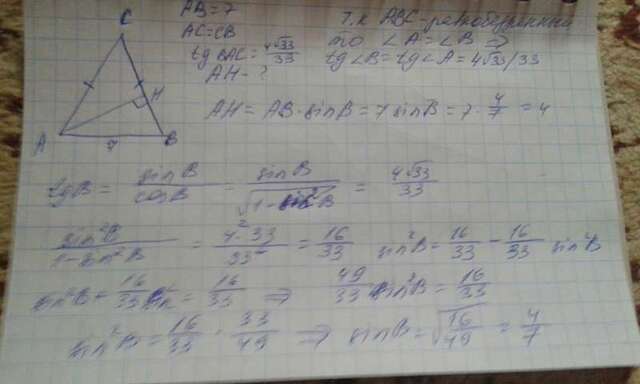 C
AB = 7
AC = CB
tg BAC = 4√33/33
AH - ?
Т.к ABC - равнобедренный
то ∠A = ∠B ⇒
tg∠B = tg∠A = 4√33/33
H
A
7
B
AH = AB · sin B = 7 sin B = 7 · 4/7 = 4
tg B = sin B / cos B = sin B / √(1 - sin²B) = 4√33/33
sin²B / (1 - sin²B) = 4² · 33 / 33² = 16/33
sin²B = 16/33 - 16/33 sin²B
sin²B + 16/33 sin² = 16/33 ⇒ 49/33 sin²B = 16/33
sin²B = 16/33 · 33/49 ⇒ sin B = √(16/49) = 4/7